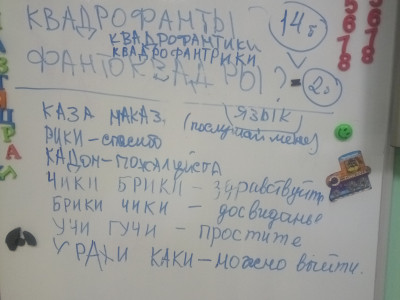 КВАДРОФАНТЫ 14 б
КВАДРОФАНТИКИ
КВАДРОФАНТРИКИ
ФАНТОКВАДРЫ? = 2б
5678
5678
КАЗА МАКАЗ. ЯЗЫК
(послушай меня)
РИКИ - спасибо
КАДОН - пожалуйста
ЧИКИ БРИКИ - здравствуйте
БРИКИ ЧИКИ - досвиданье
УЧИ ГУЧИ - простите
УРАХИ КАКИ - можно выйти.